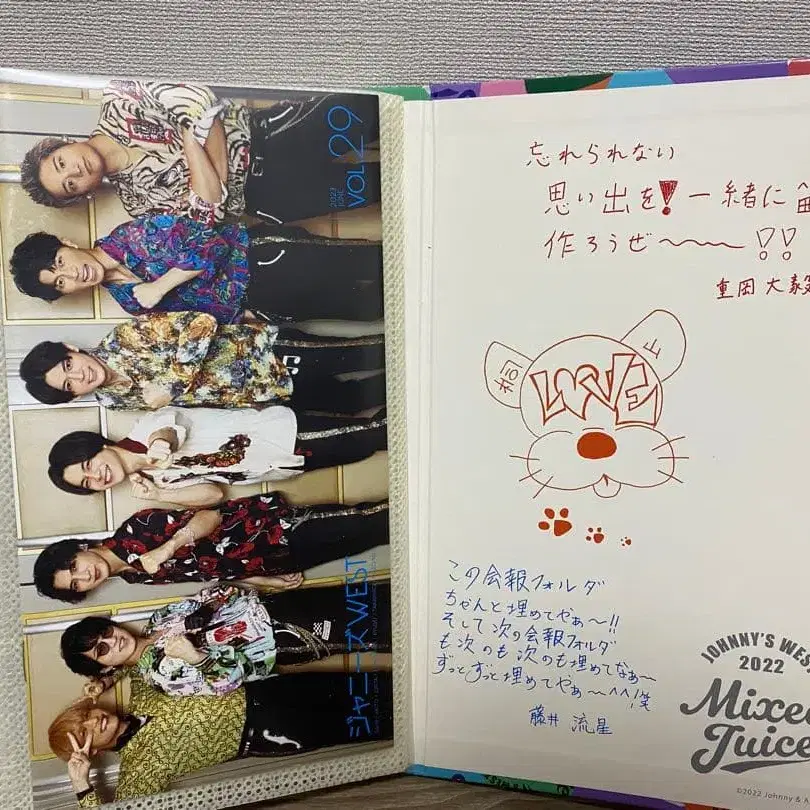 2023
JUNE
VOL.29
ジャニーズWEST
忘れられない
思い出を!一緒に
作ろうぜ〜〜!!
重岡 大毅
桐
正
LOVE
この会報フォルダ
ちゃんと埋めてやぁ〜!!
そして次の会報フォルダ
も次のも次のも埋めてなぁ〜
ずっとずっと埋めてやぁ〜^^!笑
藤井 流星
JOHNNY'S WES
2022
Mixed
Juice
©2022 Johnny & A